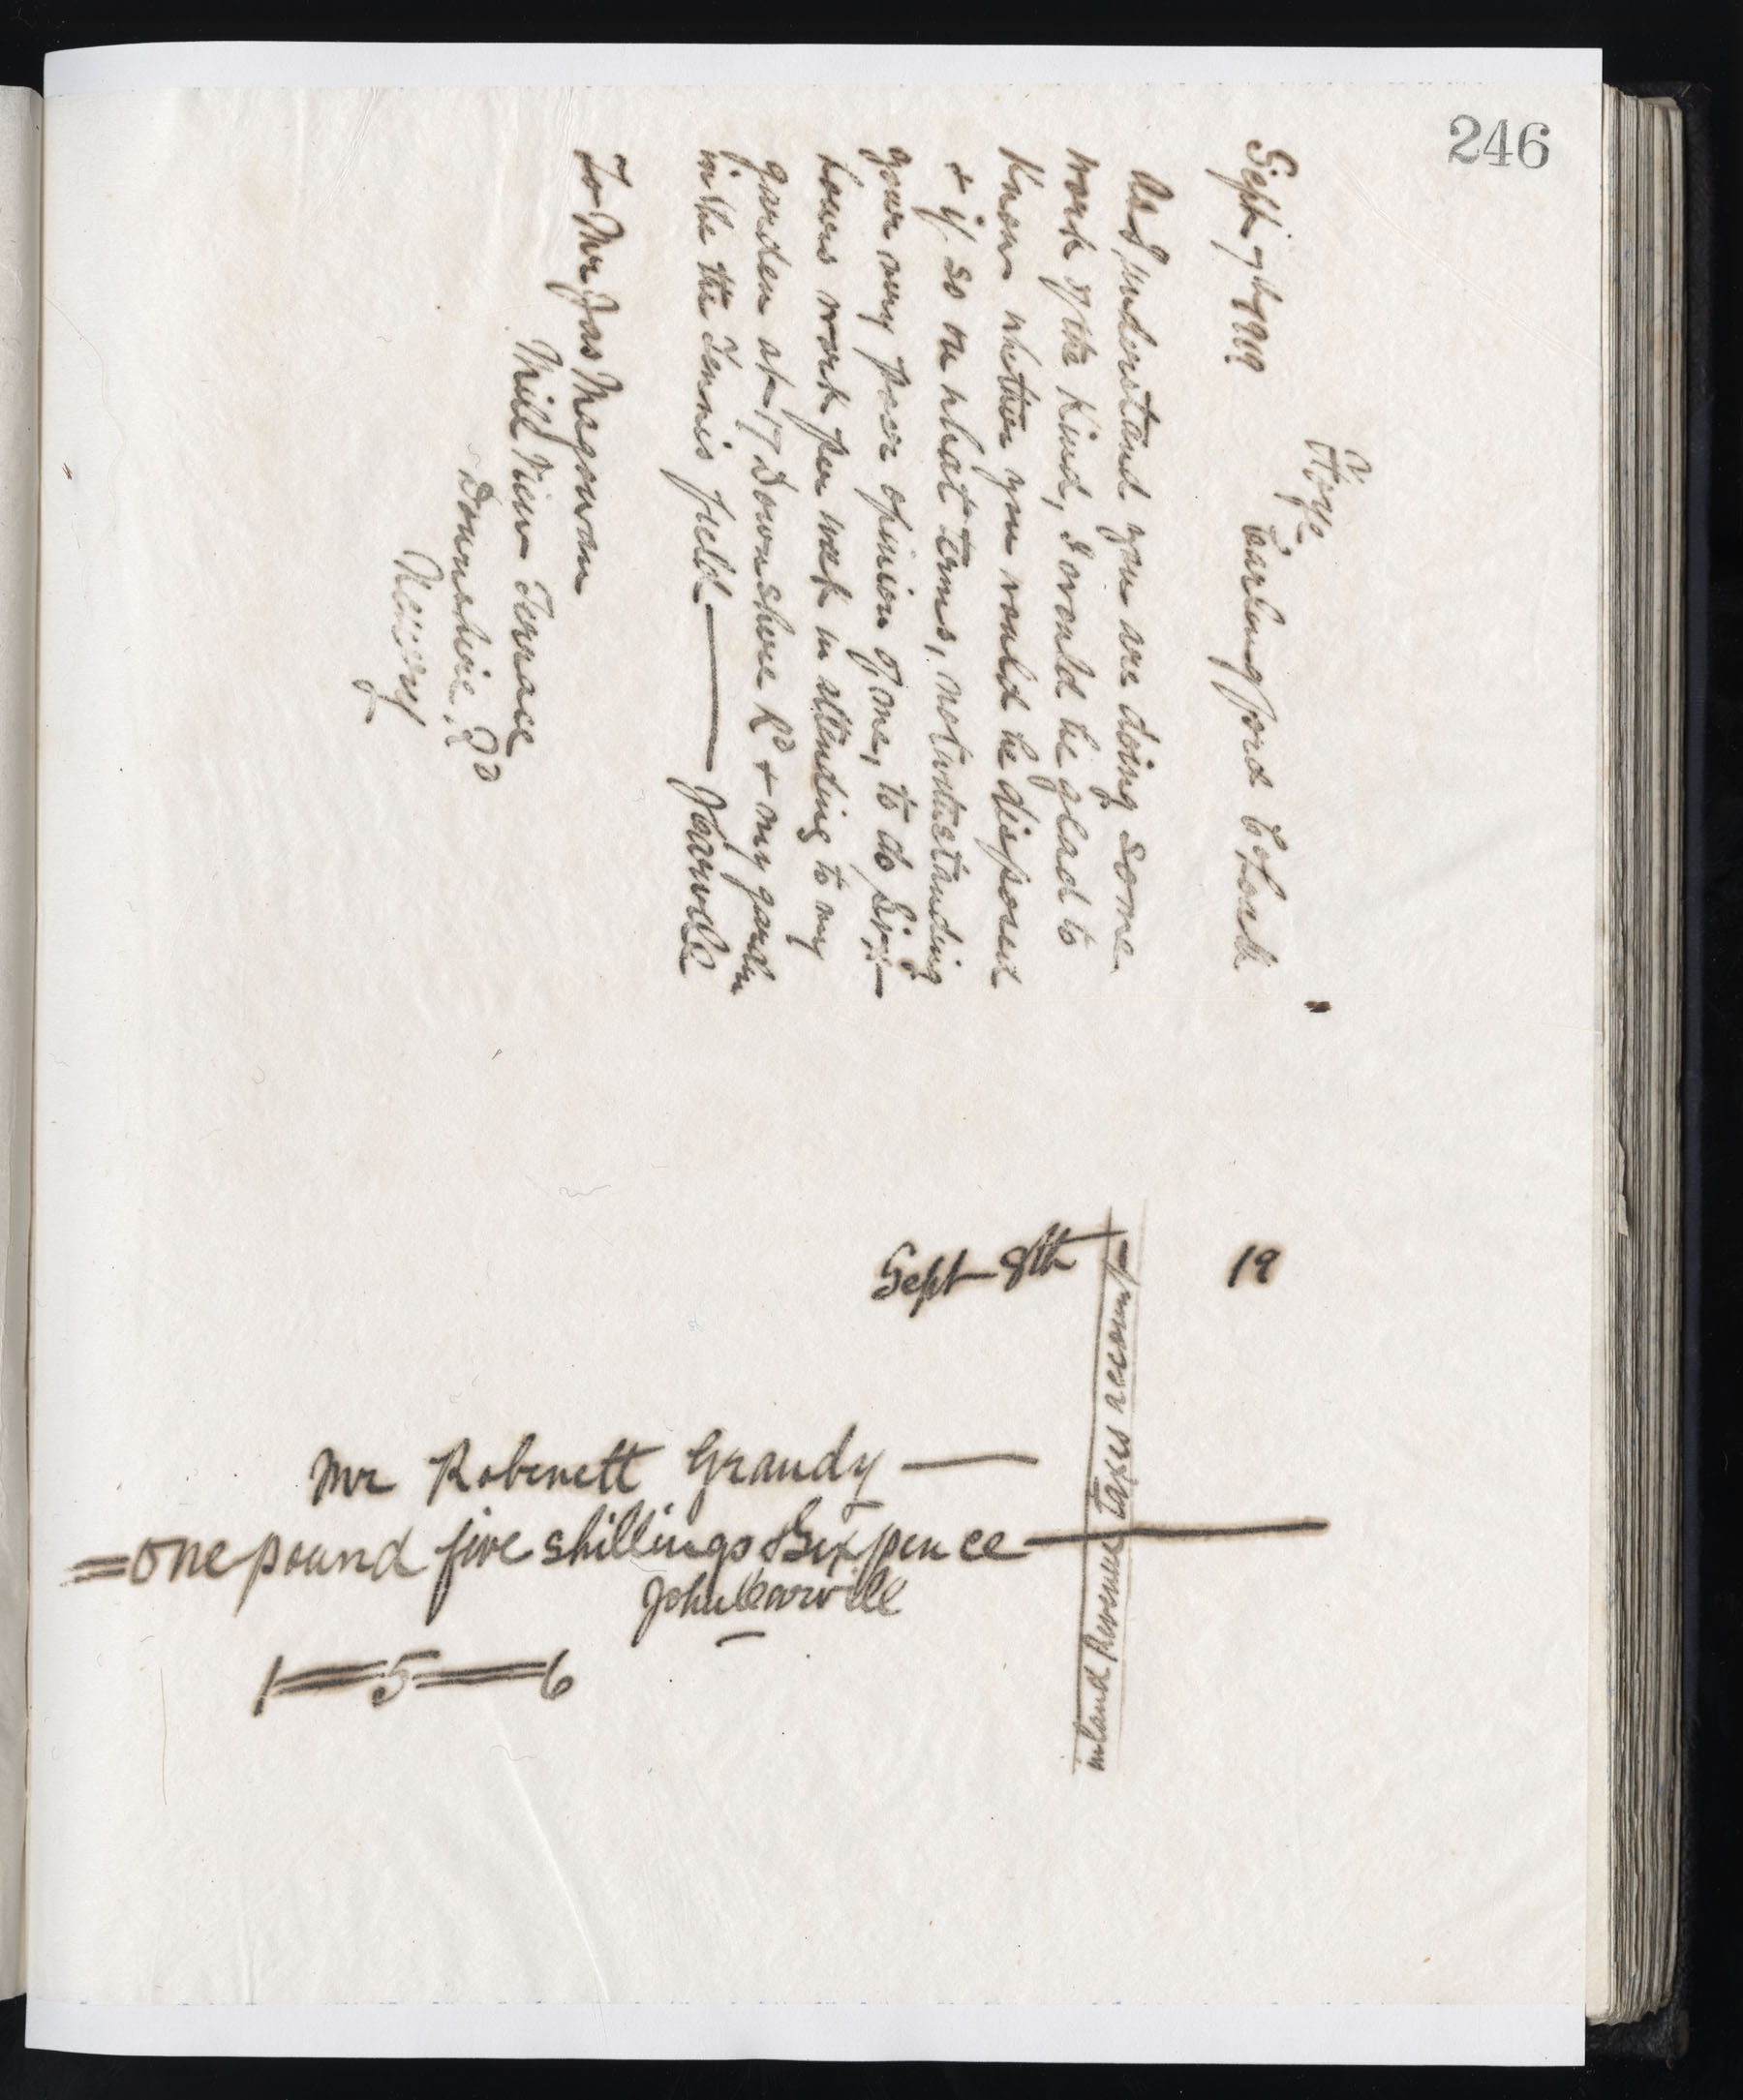 246
Sept 7th 1919
Carlingford Co Louth
As I understand you are doing some
work of the kind, I would be glad to
know whether you would be disposed
& if so on what terms, notwithstanding
your very poor opinion of me, to do six
hours work per week in attending to my
garden at 17 Downshire Rd & my garden
in the the Tennis field — J Carvill
To Mr Jas Magowan
Mill View Terrace
Downshire Rd
Newry
19
Sept 8th
Mr Robinett Grandy —
=one pound five shillings & Sixpence—
John Carvill
1=5=6